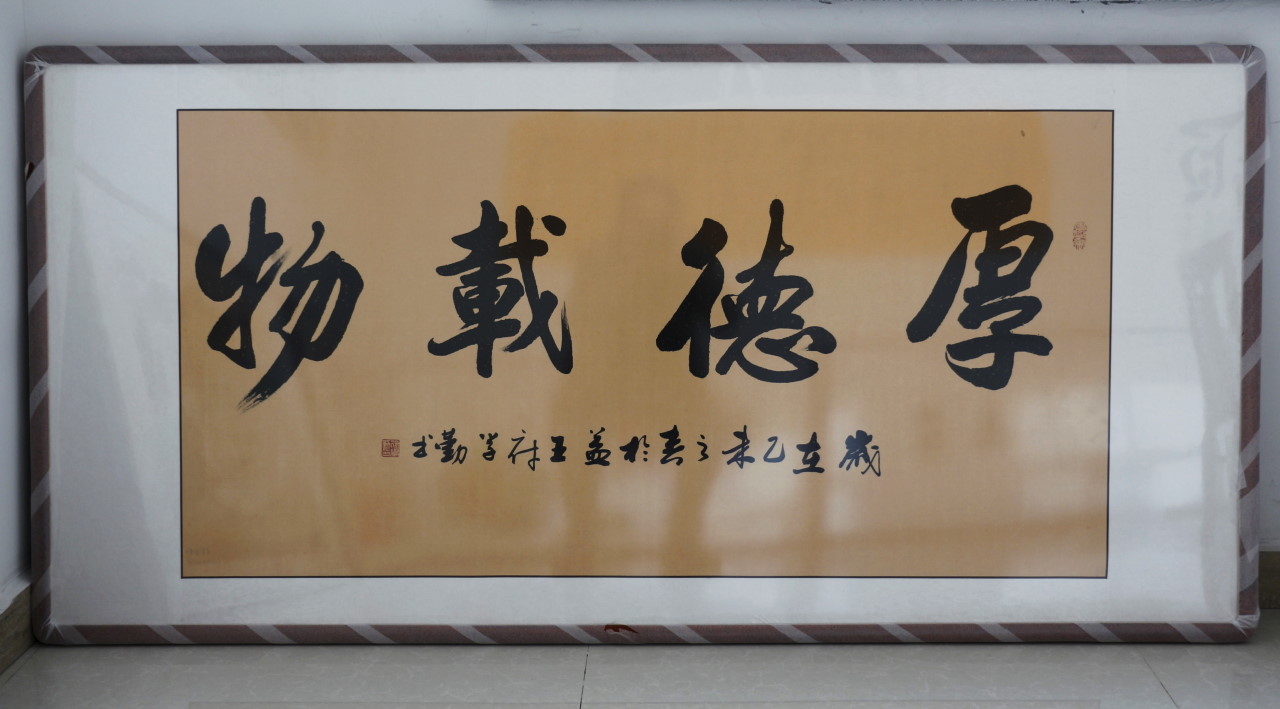 厚德載物
歲在乙未之春於益王府學勤書